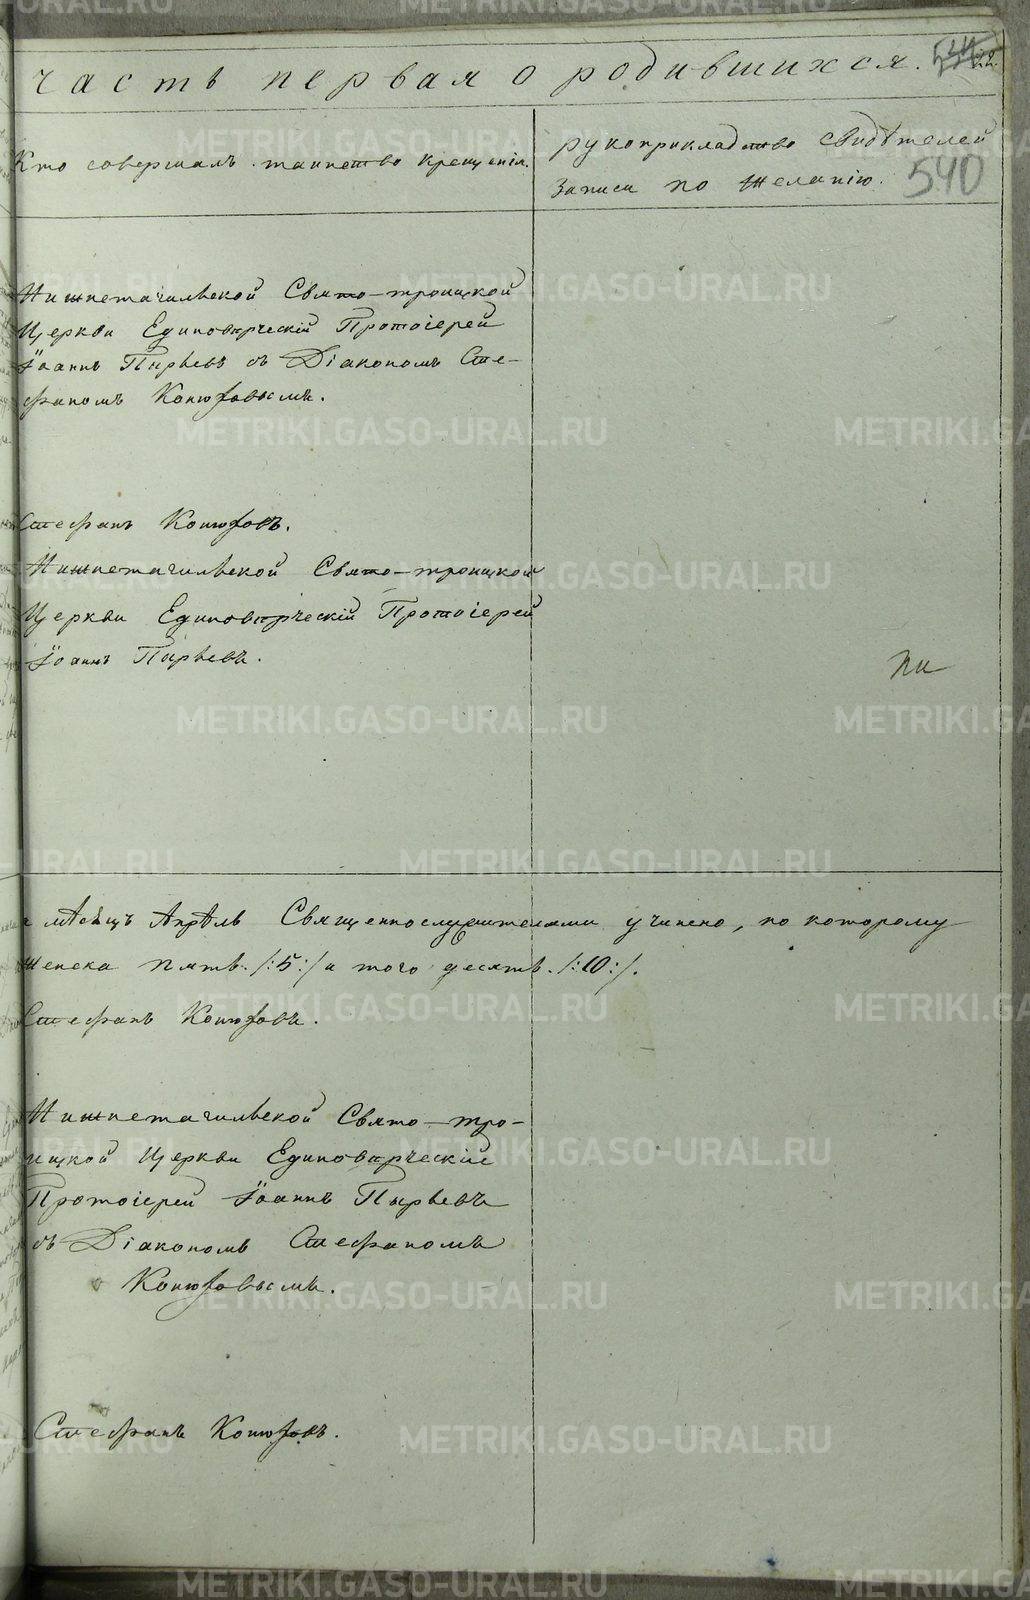 часть первая о родившихся.
22.
Кто совершалъ таинство крещенія.
рукоприкладство свидѣтелей
записи по желанію.
540
Нижнетагильской Свято-троицкой
Церкви Единовѣрческій Протоіерей
Іоаннъ Пырьевъ съ Діакономъ Сте-
фаномъ Конюховымъ.
Стефанъ Конюховъ.
Нижнетагильской Свято-троицкой
Церкви Единовѣрческій Протоіерей
Іоаннъ Пырьевъ.
мѣсяцъ Апрѣль Священнослужителями учинено, по которому
женска пять /:5:/ и того десять /:10:/.
Стефанъ Конюховъ.
Нижнетагильской Свято-тро-
ицкой Церкви Единовѣрческій
Протоіерей Іоаннъ Пырьевъ
съ Діакономъ Стефаномъ
Конюховымъ.
Стефанъ Конюховъ.
METRIKI.GASO-URAL.RU